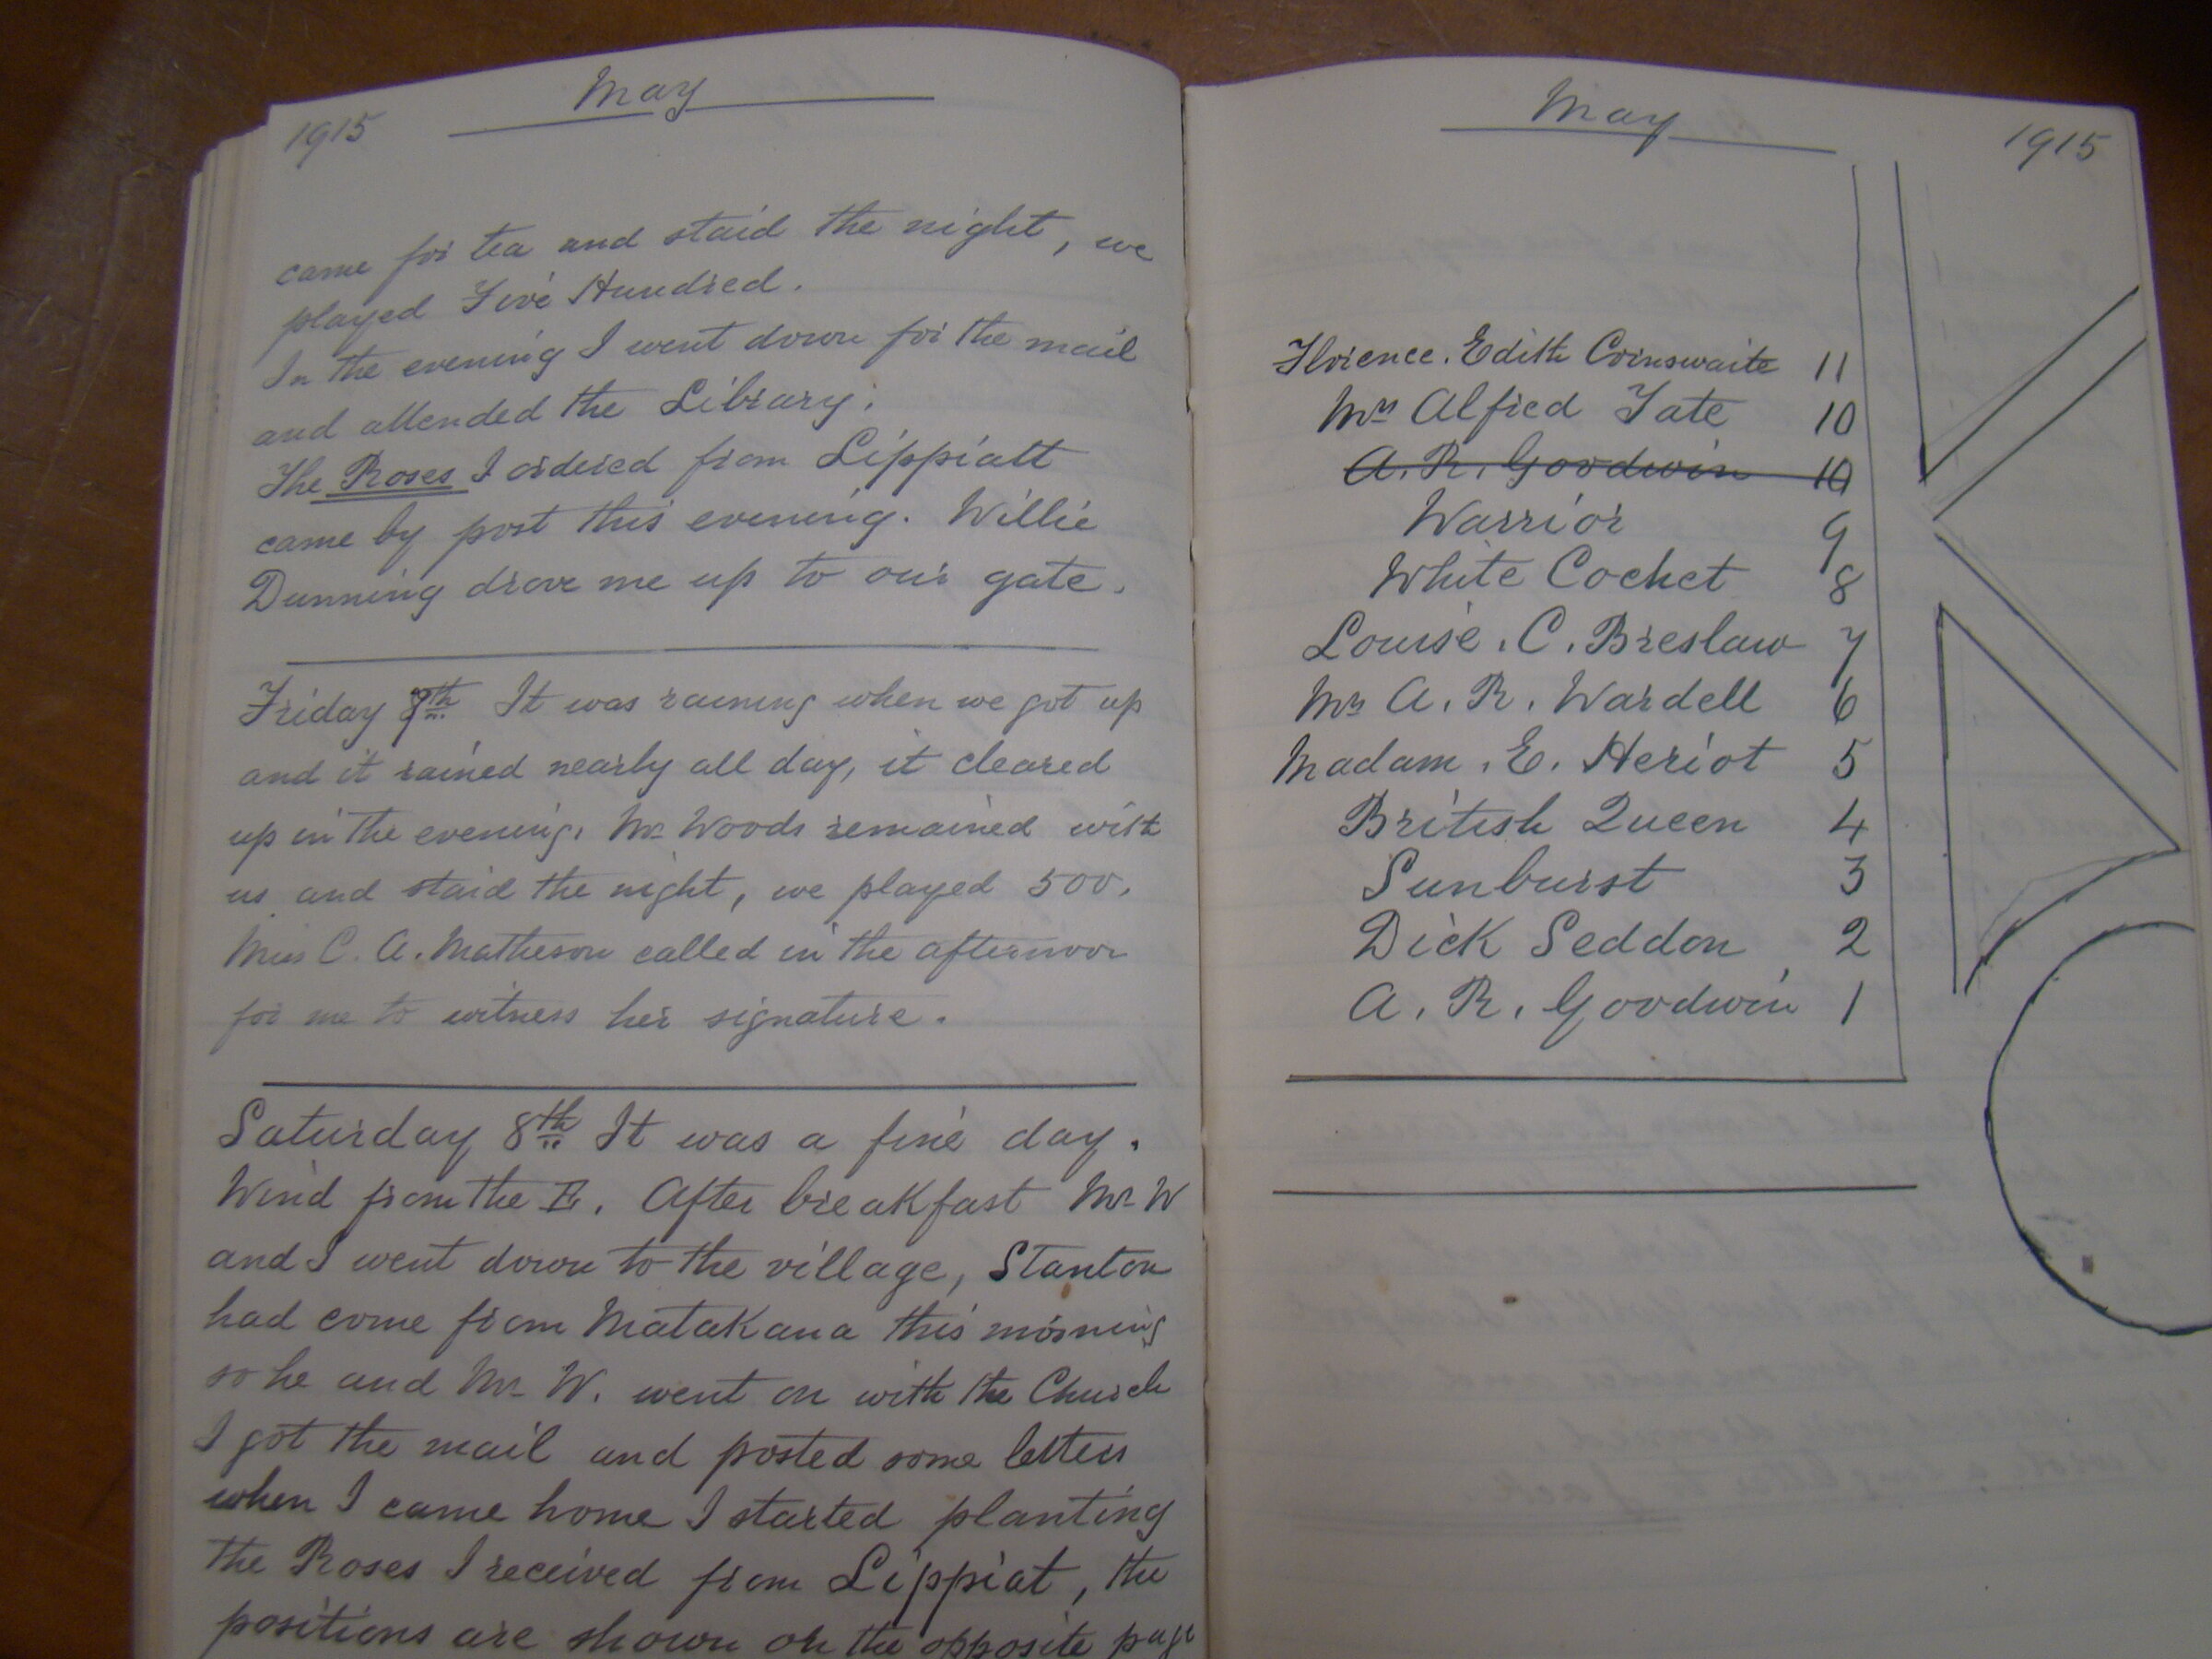 May
1915
came for tea and staid the night, we
played Five Hundred.
In the evening I went down for the mail
and attended the Library.
The Roses I ordered from Lippiatt
came by post this evening. Willie
Dunning drove me up to our gate.
Friday 7th It was raining when we got up
and it rained nearly all day, it cleared
up in the evening. Mr Woods remained with
us and staid the night, we played 500.
Miss C. A. Matheson called in the afternoon
for me to witness her signature.
Saturday 8th It was a fine day.
Wind from the E. After breakfast Mr W
and I went down to the village, Stanton
had come from Matakana this morning
so he and Mr W. went on with the Church
I got the mail and posted some letters
when I came home I started planting
the Roses I received from Lippiat, the
positions are shown on the opposite page
May
1915
Florence. Edith Coinswaite 11
Mrs Alfred Tate 10
A. R. Goodwin 10
Warrior 9
White Cochet 8
Louise. C. Breslaw 7
Mrs A. R. Wardell 6
Madam. E. Heriot 5
British Queen 4
Sunburst 3
Dick Seddon 2
A. R. Goodwin 1